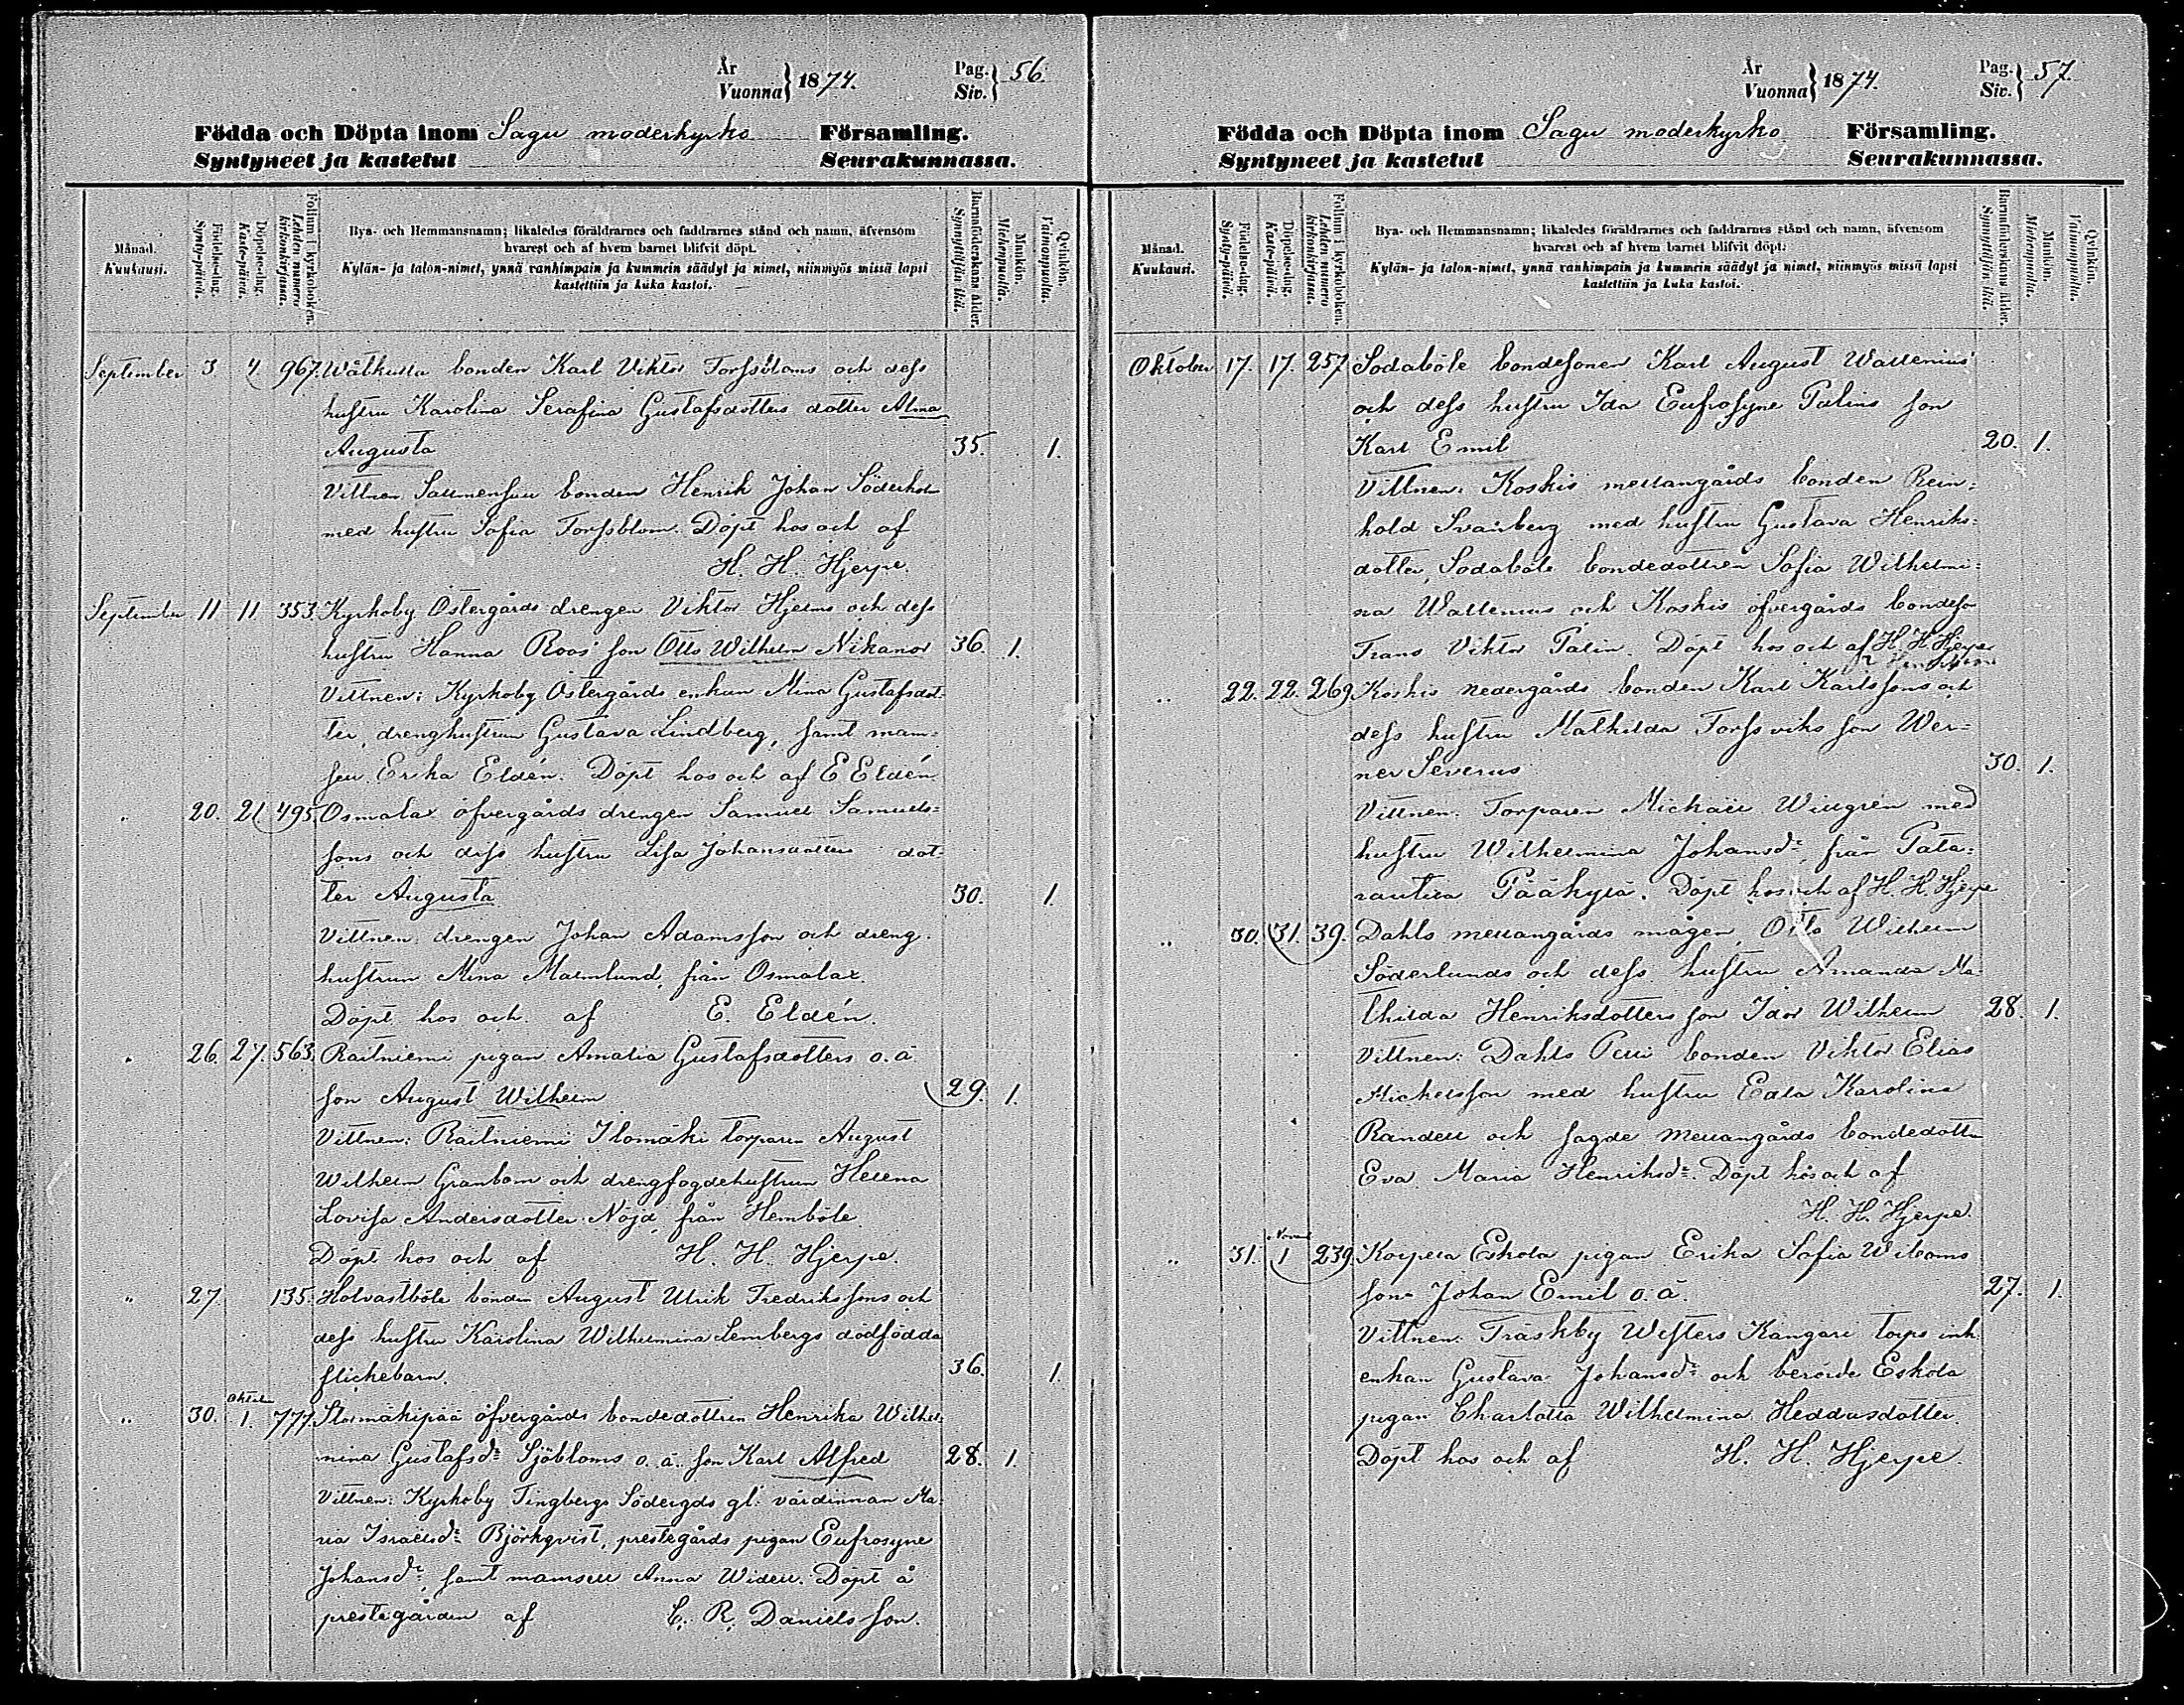 År
Vuonna } 1874.
Pag.
Siv. } 56.
Födda och Döpta inom Sagu moderkyrko Församling.
Syntyneet ja kastetut Seurakunnassa.
Månad.
Kuukausi.
Födelse-dag.
Synty-päivä.
Döpelse-dag.
Kaste-päivä.
Folium i kyrkoboken.
Lehden numero kirkonkirjassa.
Bya- och Hemmansnamn; likaledes föräldrarnes och faddrarnes stånd och namn, äfvensom
hvarest och af hvem barnet blifvit döpt.
Kylän- ja talon-nimet, ynnä vanhimpain ja kummein säädyt ja nimet, niinmyös missä lapsi
kastettiin ja kuka kastoi.
Barnaföderskans ålder.
Synnyttäjän ikä.
Mankön.
Miehenpuolta.
Qvinkön.
Vaimonpuolta.
September 3 4 967. Wåltkulla bonden Karl Viktor Forssbloms och dess
hustru Karolina Serafina Gustafsdotters dotter Alma
Augusta 35. 1.
Vittnen, bonden Henrik Johan Söderholm
med hustru Sofia Forssblom. Döpt hos och af
H. H. Hjerpe.
September 11 11 353. Kyrkoby Östergårds drengen Viktor Hjelms och dess
hustru Hanna Roos' son Otto Wilhelm Nikanor 36. 1.
Vittnen: Kyrkoby Östergårds enkan Mina Gustafsdot-
ter, drenghustrun Gustava Lindberg, samt mam-
sell Erika Eldén. Döpt hos och af E Eldén
" 20. 21 495. Osmalax öfvergårds drengen Samuel Samuels-
sons och dess hustru Lisa Johansdotters dot-
ter Augusta 30. 1.
Vittnen: drengen Johan Adamsson och dreng-
hustrun Mina Malmlund, från Osmalax.
Döpt hos och af E. Eldén.
" 26. 27. 563. Raitniemi pigan Amalia Gustafsdotters o. ä
son August Wilhelm 29. 1.
Vittnen: Raitniemi Ilomäki torparen August
Wilhelm Granbom och drengfogdehustrun Helena
Lovisa Andersdotter Nöjd, från Hemböle.
Döpt hos och af H. H. Hjerpe.
" 27. 135. Holvastböle bonden August Ulrik Fredrikssons och
dess hustru Karolina Wilhelmina Lembergs dödfödda
flickebarn. 36. 1.
Oktober
" 30. 1. 777. Stormäkipää öfvergårds bondedottren Henrika Wilhel-
mina Gustafsdr Sjöbloms o. ä. son Karl Alfred 28. 1.
Vittnen: Kyrkoby Tingbergs Södergds gl. värdinnan Ma-
ria Israelsdr Björkqvist, prestegårds pigan Eufrosyne
Johansdr, samt mamsell Anna Widell. Döpt å
prestegården af C. R. Danielsson.
År
Vuonna } 1874.
Pag.
Siv. } 57.
Födda och Döpta inom Sagu moderkyrko Församling.
Syntyneet ja kastetut Seurakunnassa.
Månad.
Kuukausi.
Födelse-dag.
Synty-päivä.
Döpelse-dag.
Kaste-päivä.
Folium i kyrkoboken.
Lehden numero kirkonkirjassa.
Bya- och Hemmansnamn; likaledes föräldrarnes och faddrarnes stånd och namn, äfvensom
hvarest och af hvem barnet blifvit döpt.
Kylän- ja talon-nimet, ynnä vanhimpain ja kummein säädyt ja nimet, niinmyös missä lapsi
kastettiin ja kuka kastoi.
Barnaföderskans ålder.
Synnyttäjän ikä.
Mankön.
Miehenpuolta.
Qvinkön.
Vaimonpuolta.
Oktober 17. 17. 257 Sodaböle bondesonen Karl August Wallenius'
och dess hustru Ida Eufrosyne Palins son
Karl Emil 20. 1.
Vittnen: Koskis mellangårds bonden Rein-
hold Svanberg med hustru Gustava Henriks-
dotter, Sodaböle bondedottren Sofia Wilhelmi-
na Wallenius och Koskis öfvergårds bondeson
Frans Viktor Palin. Döpt hos och af H. H. Hjerpe
" 22. 22. 269 Koskis nedergårds bonden Karl Karlssons och
dess hustru Mathilda Forssviks son Wer-
ner Severus 30. 1.
Vittnen: Torparen Mickäll Willgrén med
hustru Wilhelmina Johansdr, från Pata-
rautila Pääkylä. Döpt hos och af H. H. Hjerpe
" 30. 31. 39. Dahls mellangårds mågen, Otto Wilhelm
Söderlunds och dess hustru Amanda Ma-
thilda Henriksdotters son Idor Wilhelm 28. 1.
Vittnen: Dahls Pelli bonden Viktor Elias
Michelsson med hustru Edla Karolina
Randell och sagde Mellangårds bondedotter
Eva Maria Henriksdr. Döpt hos och af
H. H. Hjerpe.
Novemb
" 31. 1 239. Korpela Eskola pigan Erika Sofia Wiloms
son Johan Emil o. ä. 27. 1.
Vittnen: Träskby Westers Kangari torps inh.
enkan Gustava Johansdr och berörde Eskola
pigan Charlotta Wilhelmina Heddasdotter.
Döpt hos och af H. H. Hjerpe.